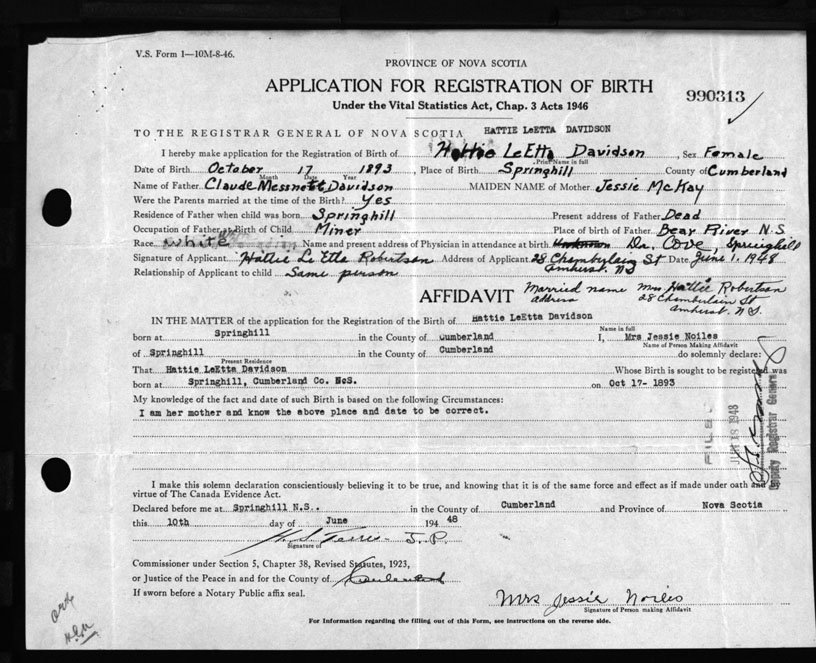 V.S. Form 1—10M-8-46.
PROVINCE OF NOVA SCOTIA
APPLICATION FOR REGISTRATION OF BIRTH
990313
Under the Vital Statistics Act, Chap. 3 Acts 1946
TO THE REGISTRAR GENERAL OF NOVA SCOTIA HATTIE LeETTA DAVIDSON
I hereby make application for the Registration of Birth of Hattie LeEtta Davidson, Sex Female
Print Name in full
Date of Birth October 17 1893, Place of Birth Springhill County of Cumberland
Month Date Year
Name of Father Claude Davidson MAIDEN NAME of Mother Jessie McKay
Were the Parents married at the time of the Birth? Yes
Residence of Father when child was born Springhill Present address of Father Dead
Occupation of Father at Birth of Child Miner Place of birth of Father Bear River N.S
Race White Name and present address of Physician in attendance at birth Unknown Dr. Cove, Springhill
Signature of Applicant Hattie Le Etta Robertson Address of Applicant 28 Chamberlain St Date June 1, 1948
Amherst. NS
Relationship of Applicant to child Same person
AFFIDAVIT Married name Mrs Hattie Robertson
address 28 Chamberlain St
Amherst. N.S.
IN THE MATTER of the application for the Registration of the Birth of Hattie LeEtta Davidson
Name in full
born at Springhill in the County of Cumberland I, Mrs Jessie Noiles
Name of Person Making Affidavit
of Springhill in the County of Cumberland do solemnly declare:
Present Residence
That Hattie LeEtta Davidson Whose Birth is sought to be registered was
born at Springhill, Cumberland Co. NcS. on Oct 17- 1893
My knowledge of the fact and date of such Birth is based on the following Circumstances:
I am her mother and know the above place and date to be correct.
FILED
JUN 18 1948
Deputy Registrar General
I make this solemn declaration conscientiously believing it to be true, and knowing that it is of the same force and effect as if made under oath and by
virtue of The Canada Evidence Act.
Declared before me at Springhill N.S.. in the County of Cumberland and Province of Nova Scotia
this 10th day of June 194 48
J.P.
Signature of
Commissioner under Section 5, Chapter 38, Revised Statutes, 1923,
or Justice of the Peace in and for the County of Cumberland
If sworn before a Notary Public affix seal.
Mrs Jessie Noiles
Signature of Person making Affidavit
For Information regarding the filling out of this Form, see instructions on the reverse side.